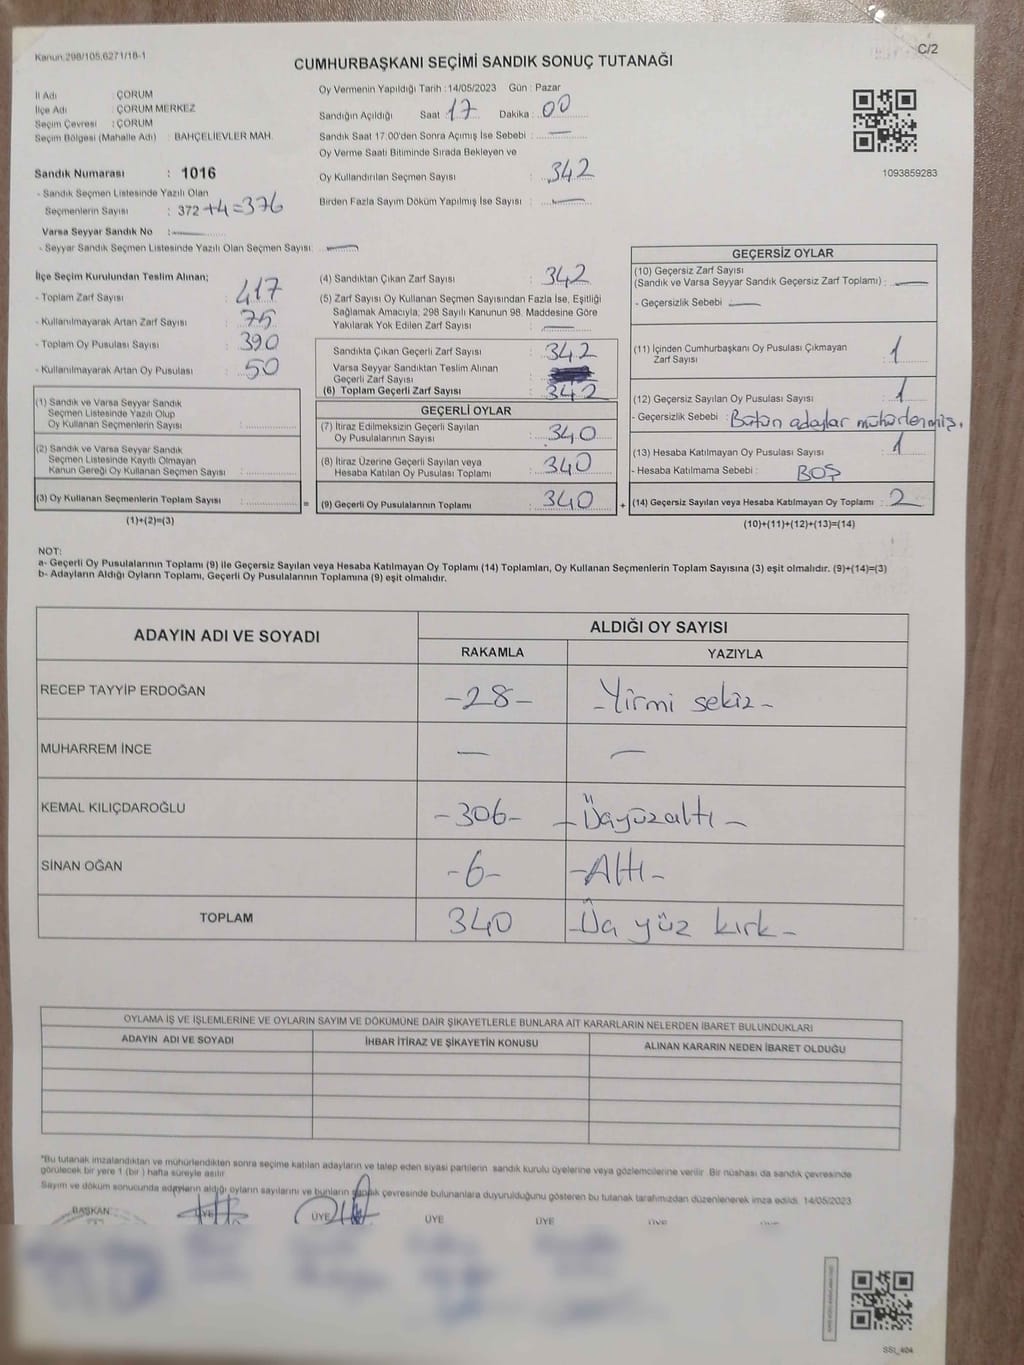 Kanun:298/105,6271/18-1
C/2
CUMHURBAŞKANI SEÇİMİ SANDIK SONUÇ TUTANAĞI
İl Adı : ÇORUM
İlçe Adı : ÇORUM MERKEZ
Seçim Çevresi : ÇORUM
Seçim Bölgesi (Mahalle Adı) : BAHÇELİEVLER MAH.
Oy Vermenin Yapıldığı Tarih : 14/05/2023 Gün : Pazar
Sandığın Açıldığı Saat : 17 Dakika : 00
Sandık Saat 17.00'den Sonra Açımış İse Sebebi : —
Oy Verme Saati Bitiminde Sırada Bekleyen ve
Oy Kullandırılan Seçmen Sayısı : 342
Birden Fazla Sayım Döküm Yapılmış İse Sayısı : —
1093859283
Sandık Numarası : 1016
- Sandık Seçmen Listesinde Yazılı Olan
Seçmenlerin Sayısı : 372 +4=376
Varsa Seyyar Sandık No : —
- Seyyar Sandık Seçmen Listesinde Yazılı Olan Seçmen Sayısı: —
İlçe Seçim Kurulundan Teslim Alınan;
- Toplam Zarf Sayısı : 417
- Kullanılmayarak Artan Zarf Sayısı : 75
- Toplam Oy Pusulası Sayısı : 390
- Kullanılmayarak Artan Oy Pusulası : 50
(1) Sandık ve Varsa Seyyar Sandık
Seçmen Listesinde Yazılı Olup
Oy Kullanan Seçmenlerin Sayısı :
(2) Sandık ve Varsa Seyyar Sandık
Seçmen Listesinde Kayıtlı Olmayan
Kanun Gereği Oy Kullanan Seçmen Sayısı :
(3) Oy Kullanan Seçmenlerin Toplam Sayısı :
(1)+(2)=(3)
(4) Sandıktan Çıkan Zarf Sayısı : 342
(5) Zarf Sayısı Oy Kullanan Seçmen Sayısından Fazla İse, Eşitliği
Sağlamak Amacıyla, 298 Sayılı Kanunun 98. Maddesine Göre
Yakılarak Yok Edilen Zarf Sayısı : —
Sandıkta Çıkan Geçerli Zarf Sayısı : 342
Varsa Seyyar Sandıktan Teslim Alınan
Geçerli Zarf Sayısı :
(6) Toplam Geçerli Zarf Sayısı : 342
GEÇERLİ OYLAR
(7) İtiraz Edilmeksizin Geçerli Sayılan
Oy Pusulalarının Sayısı : 340
(8) İtiraz Üzerine Geçerli Sayılan veya
Hesaba Katılan Oy Pusulası Toplamı : 340
= (9) Geçerli Oy Pusulalarının Toplamı : 340 +
GEÇERSİZ OYLAR
(10) Geçersiz Zarf Sayısı
(Sandık ve Varsa Seyyar Sandık Geçersiz Zarf Toplamı) : —
- Geçersizlik Sebebi : —
(11) İçinden Cumhurbaşkanı Oy Pusulası Çıkmayan
Zarf Sayısı : 1
(12) Geçersiz Sayılan Oy Pusulası Sayısı : 1
- Geçersizlik Sebebi : Bütün adaylar mühürlenmiş.
(13) Hesaba Katılmayan Oy Pusulası Sayısı : 1
- Hesaba Katılmama Sebebi : BOŞ
(14) Geçersiz Sayılan veya Hesaba Katılmayan Oy Toplamı : 2
(10)+(11)+(12)+(13)=(14)
NOT:
a- Geçerli Oy Pusulalarının Toplamı (9) ile Geçersiz Sayılan veya Hesaba Katılmayan Oy Toplamı (14) Toplamları, Oy Kullanan Seçmenlerin Toplam Sayısına (3) eşit olmalıdır. (9)+(14)=(3)
b- Adayların Aldığı Oyların Toplamı, Geçerli Oy Pusulalarının Toplamına (9) eşit olmalıdır.
ADAYIN ADI VE SOYADI
ALDIĞI OY SAYISI
RAKAMLA YAZIYLA
RECEP TAYYİP ERDOĞAN -28- -Yirmi sekiz-
MUHARREM İNCE — —
KEMAL KILIÇDAROĞLU -306- -Üçyüzaltı-
SİNAN OĞAN -6- -Altı-
TOPLAM 340 -Üç yüz kırk-
OYLAMA İŞ VE İŞLEMLERİNE VE OYLARIN SAYIM VE DÖKÜMÜNE DAİR ŞİKAYETLERLE BUNLARA AİT KARARLARIN NELERDEN İBARET BULUNDUKLARI
ADAYIN ADI VE SOYADI İHBAR İTİRAZ VE ŞİKAYETİN KONUSU ALINAN KARARIN NEDEN İBARET OLDUĞU
*Bu tutanak imzalandıktan ve mühürlendikten sonra seçime katılan adayların ve talep eden siyasi partilerin sandık kurulu üyelerine veya gözlemcilerine verilir. Bir nüshası da sandık çevresinde
görülecek bir yere 1 (bir) hafta süreyle asılır.
Sayım ve döküm sonucunda adayların aldığı oyların sayılarını ve bunların sandık çevresinde bulunanlara duyurulduğunu gösteren bu tutanak tarafımızdan düzenlenerek imza edildi. 14/05/2023
BAŞKAN ÜYE ÜYE ÜYE ÜYE ÜYE
SSI_404